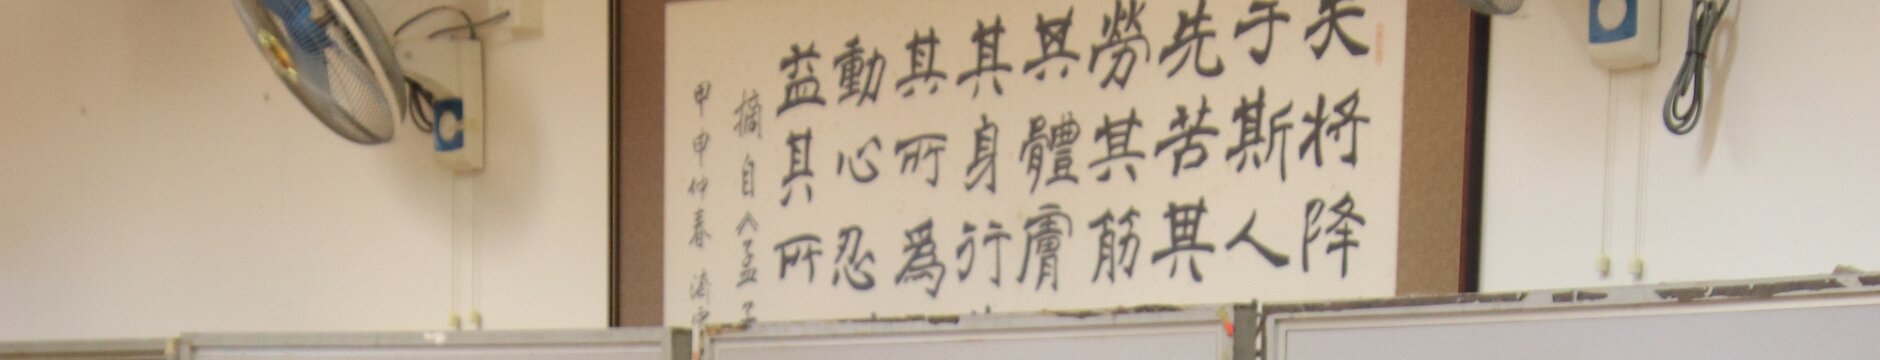 天將降
于斯人
先苦其
勞其筋
其體膚
其身行
其所為
動心忍
益其所
摘自《孟子
甲申仲春